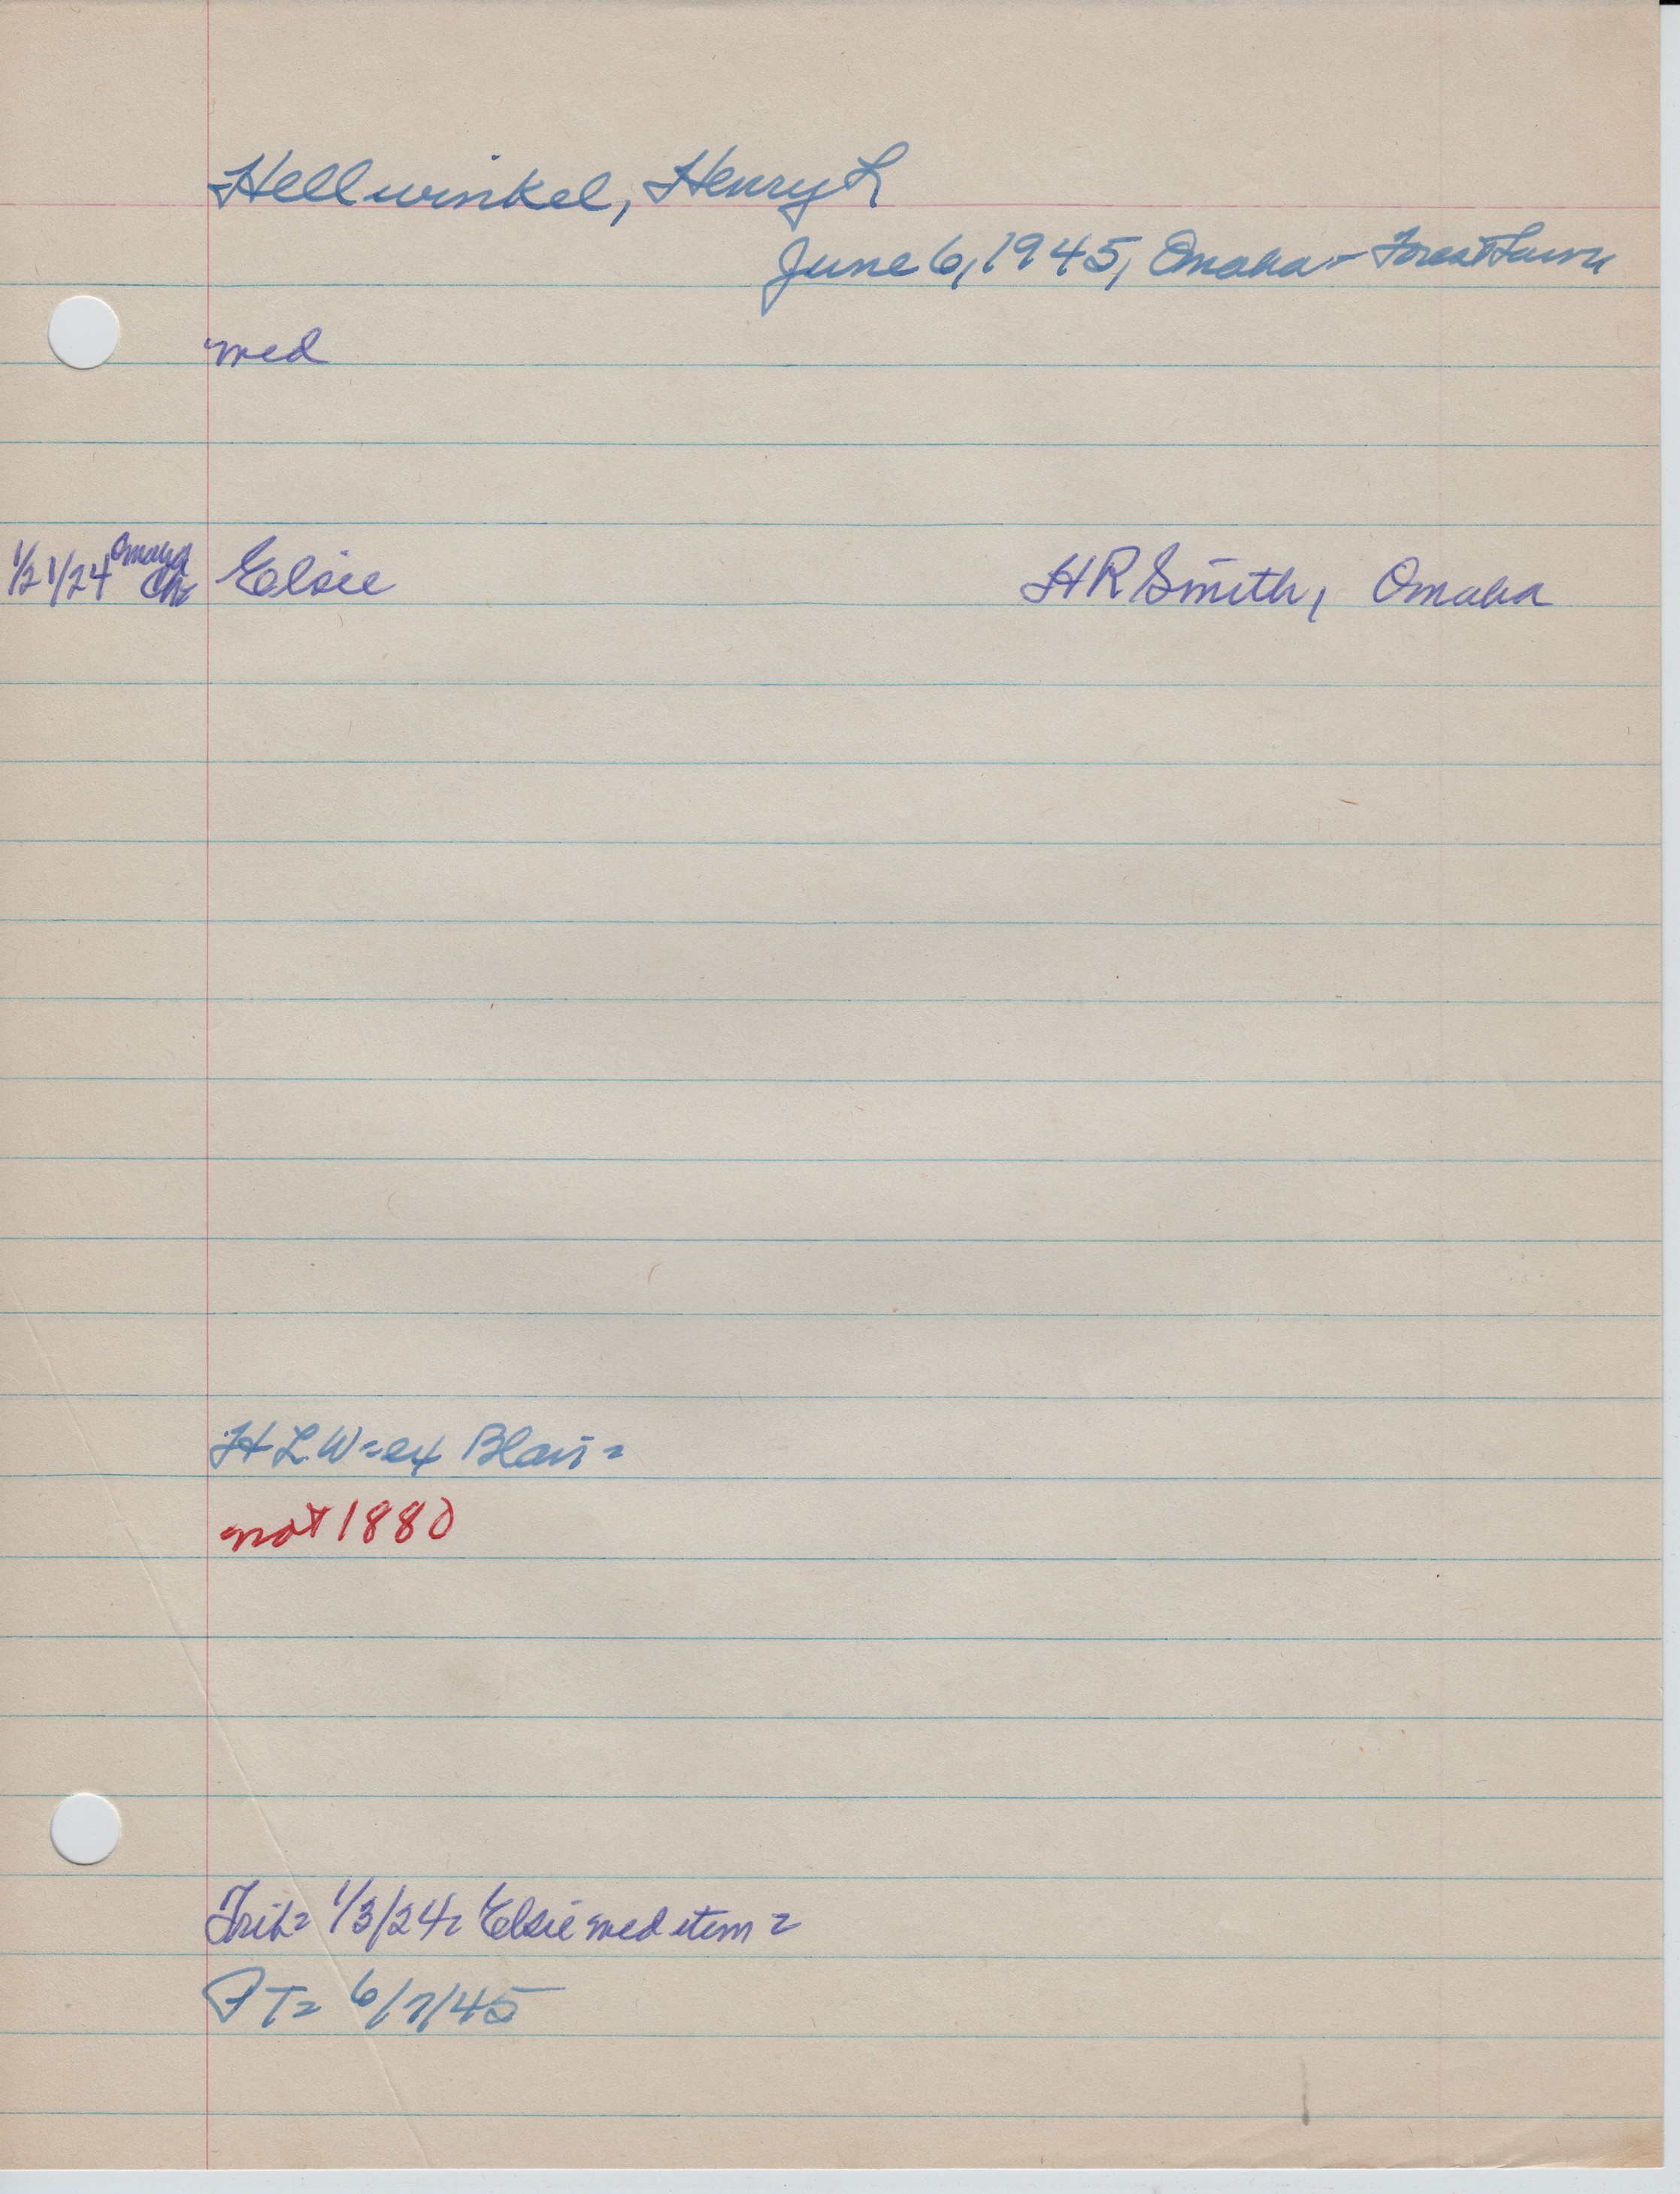 Hellwinkel, Henry L
June 6, 1945, Omaha - Forest Lawn
med
1/21/24 Omaha Ch Elsie H R Smith, Omaha
H L W = ex Blair =
not 1880
Trib = 1/3/24 = Elsie med item =
PT = 6/7/45